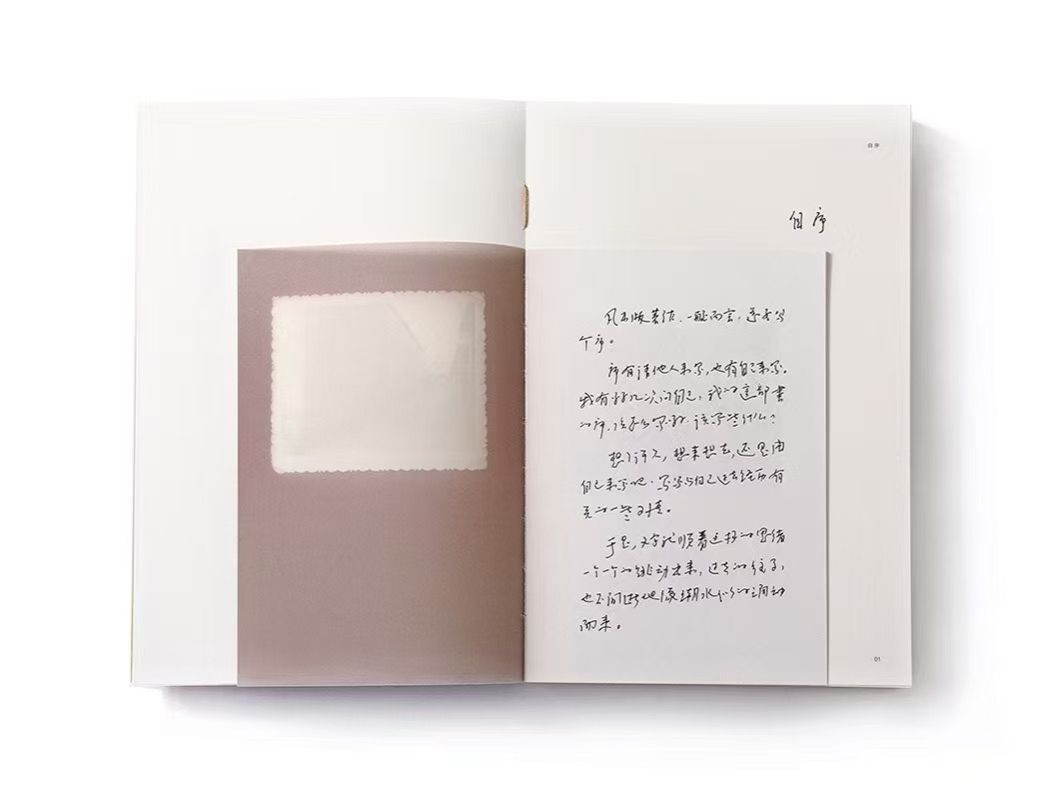 自序
自序
凡出版著作，一般而言，这要写
个序。
序有请他人来写，也有自己来写。
我有好几次问自己，我的这部书
的序，该怎么写好，该写些什么？
想了许久，想来想去，还是由
自己来写吧，写写与自己过去经历有
关的一些对意。
于是，文字就顺着这样的思绪
一个一个的跳动出来，过去的往事，
也不间断地像潮水似的涌动
而来。
01